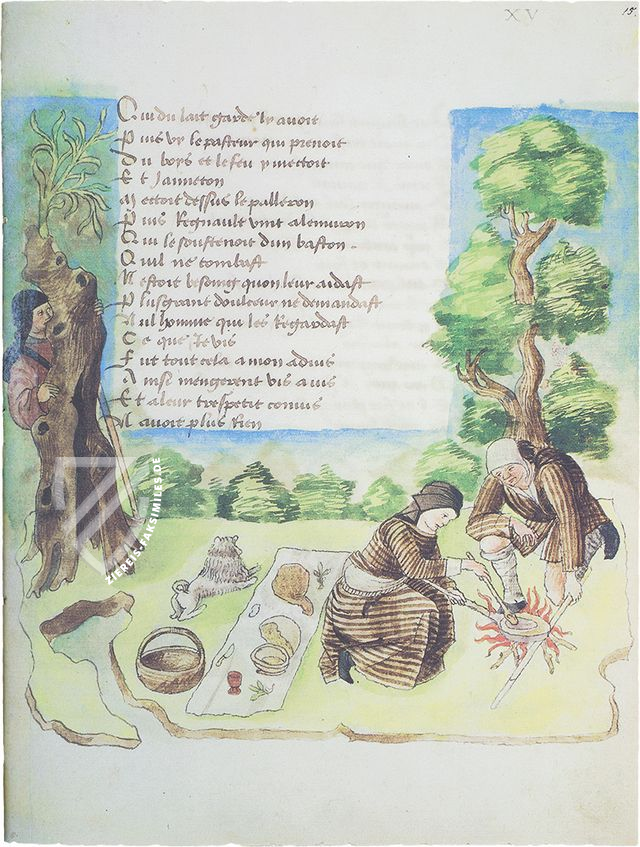 XV
15.
Qui du lait garde ly avoit
Puis vy le pasteur qui prenoit
Du boys et le feu y mectoit
Et Janneton
Mectoit dessus le palleron
Puis Regnault vint alenviron
Qui le soustenoit dun baston
Quil ne tombast
Nestoit besoing quon leur aidast
Plusgrant doulceur ne demandast
Nul homme qui les Regardast
Ce que Je vis
Fut tout cela a mon aduis
Ainsi mengerent vis a vis
Et a leur trespetit conuis
N avoit plus Rien
ZIEREIS-FAKSIMILES.DE